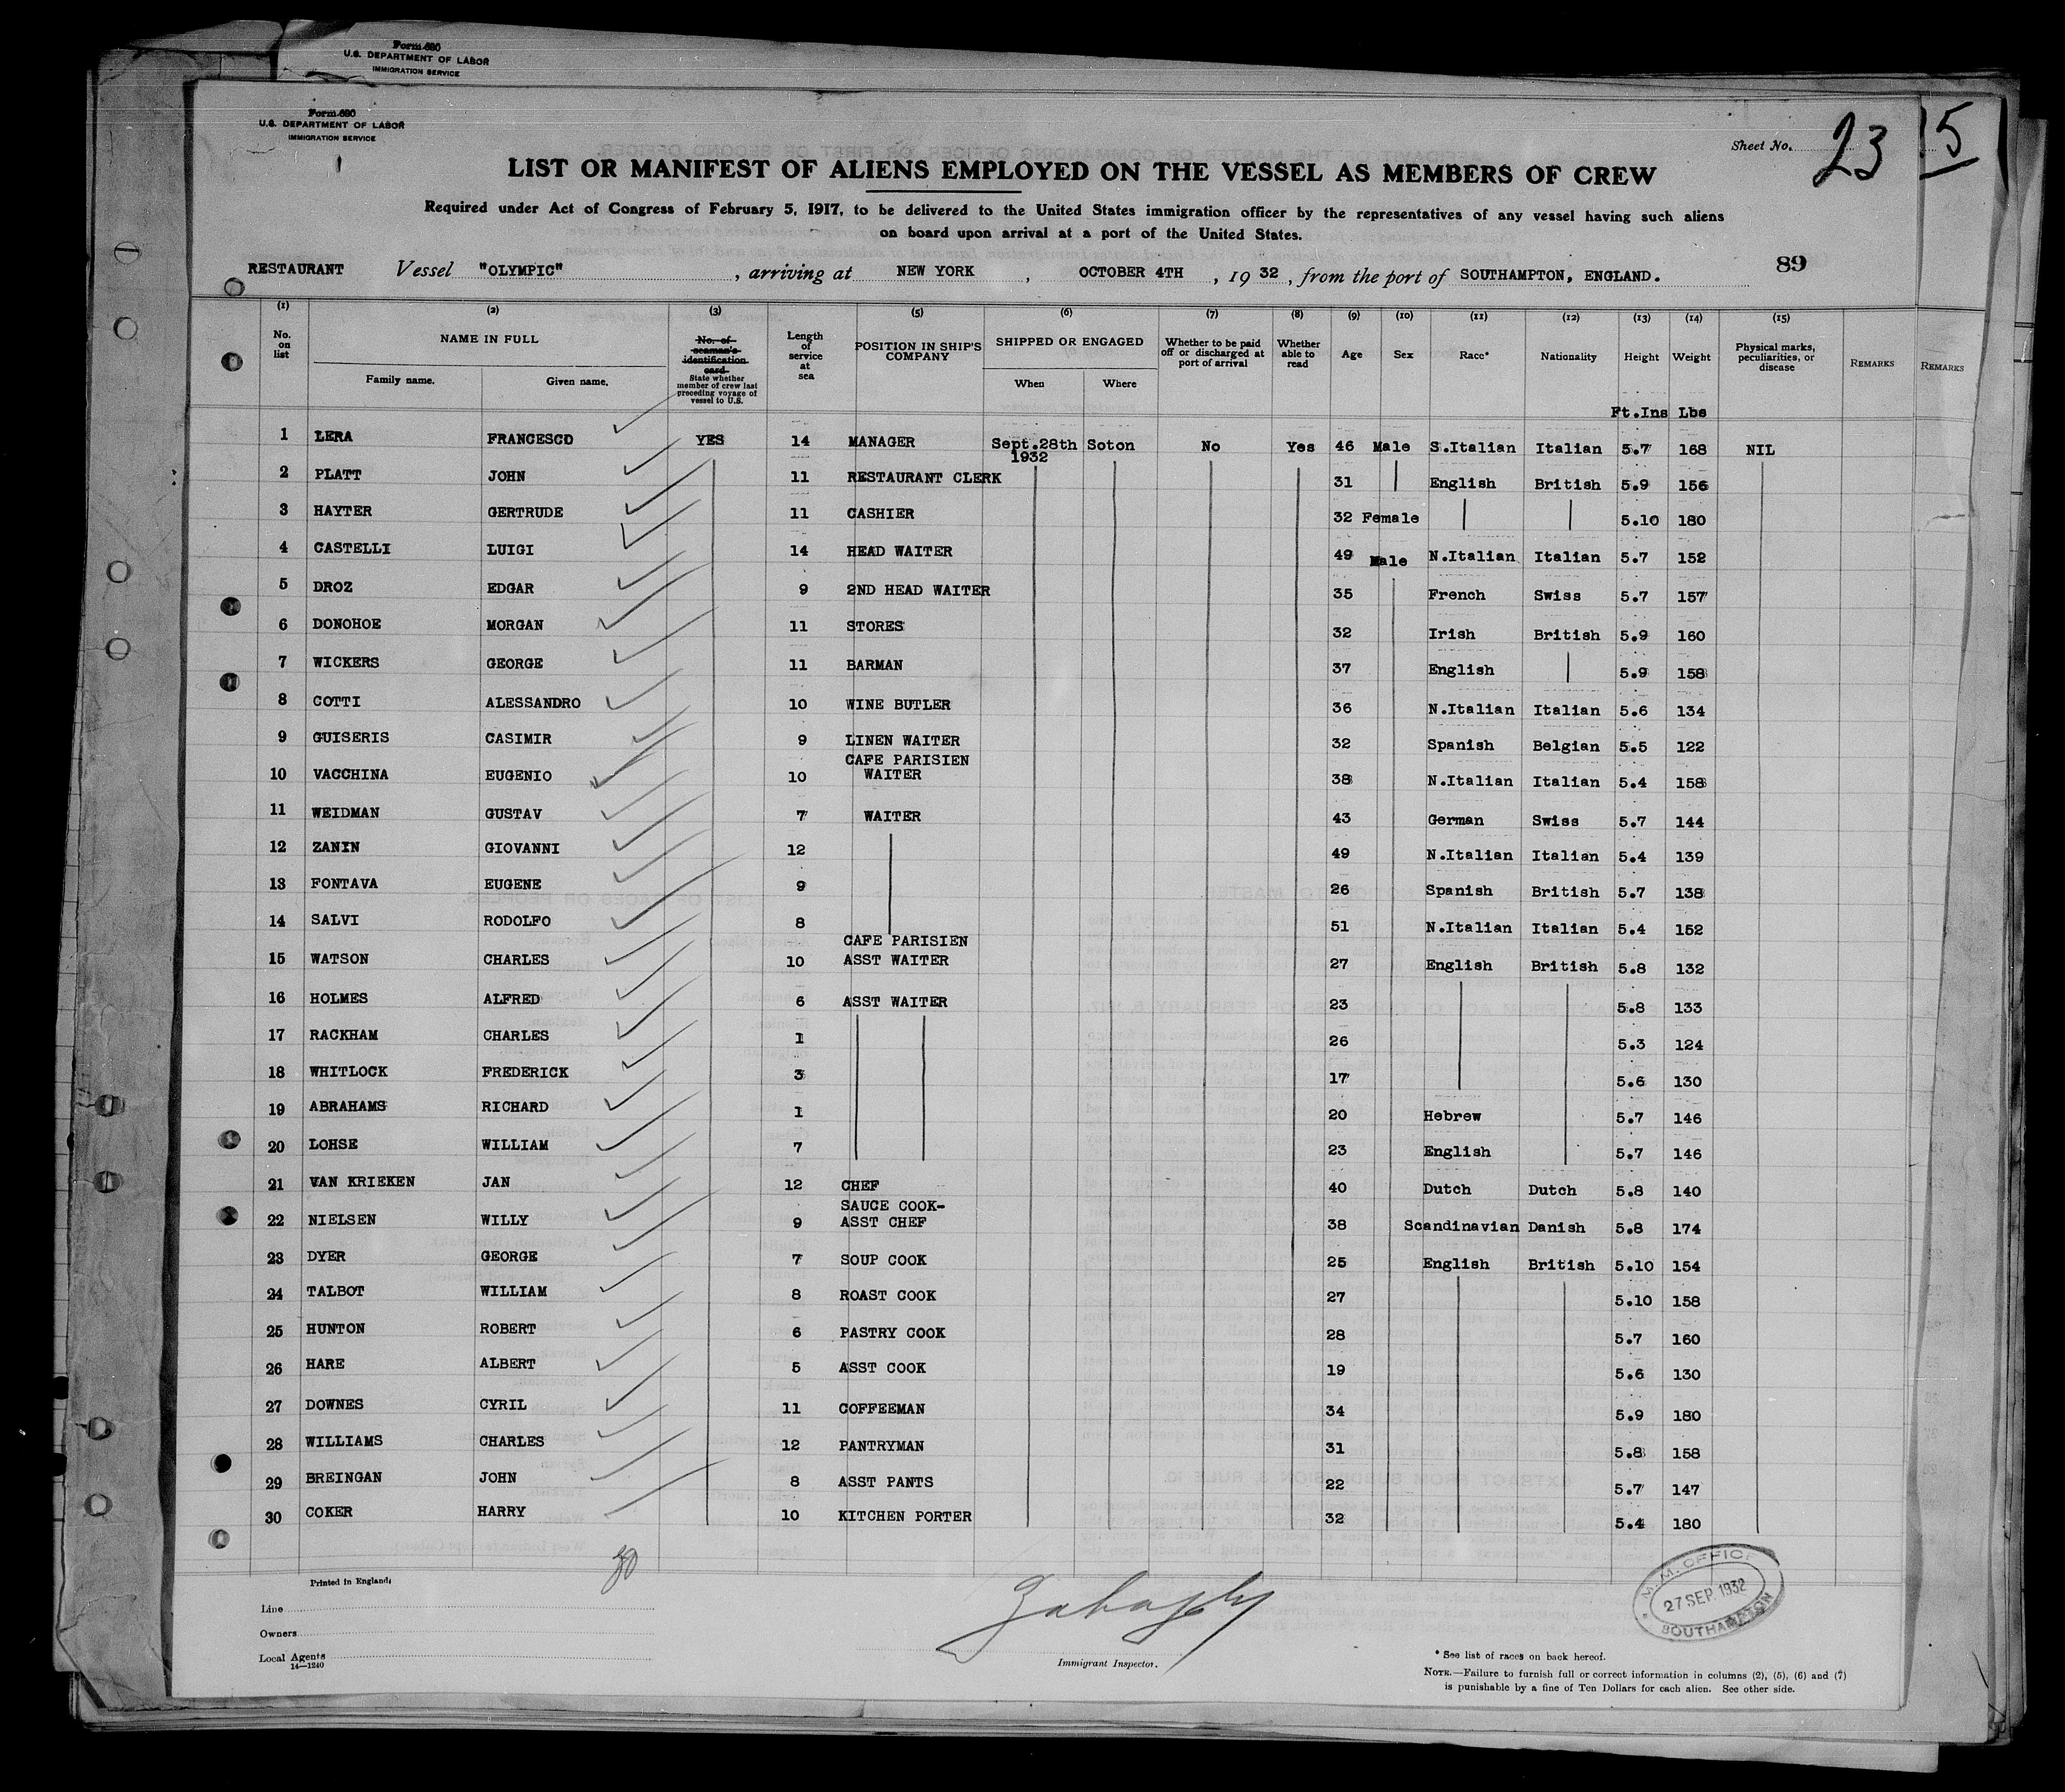 Form 680
U.S. DEPARTMENT OF LABOR
IMMIGRATION SERVICE
Form 680
U.S. DEPARTMENT OF LABOR
IMMIGRATION SERVICE
Sheet No. 23 15
LIST OR MANIFEST OF ALIENS EMPLOYED ON THE VESSEL AS MEMBERS OF CREW
Required under Act of Congress of February 5, 1917, to be delivered to the United States immigration officer by the representatives of any vessel having such aliens
on board upon arrival at a port of the United States.
89
RESTAURANT Vessel "OLYMPIC", arriving at NEW YORK, OCTOBER 4TH, 1932, from the port of SOUTHAMPTON, ENGLAND.
(1) (2) (3) (5) (6) (7) (8) (9) (10) (11) (12) (13) (14) (15)
No. on list NAME IN FULL Family name. Given name. No. of seaman's identification card State whether member of crew last preceding voyage of vessel to U.S. Length of service at sea POSITION IN SHIP'S COMPANY SHIPPED OR ENGAGED When Where Whether to be paid off or discharged at port of arrival Whether able to read Age Sex Race* Nationality Height Weight Physical marks, peculiarities, or disease REMARKS REMARKS
Ft.Ins Lbs
1 LERA FRANCESCO YES 14 MANAGER Sept.28th 1932 Soton No Yes 46 Male S.Italian Italian 5.7 168 NIL
2 PLATT JOHN 11 RESTAURANT CLERK 31 English British 5.9 156
3 HAYTER GERTRUDE 11 CASHIER 32 Female 5.10 180
4 CASTELLI LUIGI 14 HEAD WAITER 49 Male N.Italian Italian 5.7 152
5 DROZ EDGAR 9 2ND HEAD WAITER 35 French Swiss 5.7 157
6 DONOHOE MORGAN 11 STORES 32 Irish British 5.9 160
7 WICKERS GEORGE 11 BARMAN 37 English 5.9 158
8 COTTI ALESSANDRO 10 WINE BUTLER 36 N.Italian Italian 5.6 134
9 GUISERIS CASIMIR 9 LINEN WAITER 32 Spanish Belgian 5.5 122
10 VACCHINA EUGENIO 10 CAFE PARISIEN WAITER 38 N.Italian Italian 5.4 158
11 WEIDMAN GUSTAV 7 WAITER 43 German Swiss 5.7 144
12 ZANIN GIOVANNI 12 49 N.Italian Italian 5.4 139
13 FONTAVA EUGENE 9 26 Spanish British 5.7 138
14 SALVI RODOLFO 8 51 N.Italian Italian 5.4 152
15 WATSON CHARLES 10 CAFE PARISIEN ASST WAITER 27 English British 5.8 132
16 HOLMES ALFRED 6 ASST WAITER 23 5.8 133
17 RACKHAM CHARLES 1 26 5.3 124
18 WHITLOCK FREDERICK 3 17 5.6 130
19 ABRAHAMS RICHARD 1 20 Hebrew 5.7 146
20 LOHSE WILLIAM 7 23 English 5.7 146
21 VAN KRIEKEN JAN 12 CHEF 40 Dutch Dutch 5.8 140
22 NIELSEN WILLY 9 SAUCE COOK- ASST CHEF 38 Scandinavian Danish 5.8 174
23 DYER GEORGE 7 SOUP COOK 25 English British 5.10 154
24 TALBOT WILLIAM 8 ROAST COOK 27 5.10 158
25 HUNTON ROBERT 6 PASTRY COOK 28 5.7 160
26 HARE ALBERT 5 ASST COOK 19 5.6 130
27 DOWNES CYRIL 11 COFFEEMAN 34 5.9 180
28 WILLIAMS CHARLES 12 PANTRYMAN 31 5.8 158
29 BREINGAN JOHN 8 ASST PANTS 22 5.7 147
30 COKER HARRY 10 KITCHEN PORTER 32 5.4 180
30
Printed in England.
Line
Owners
Local Agents
14—1240
Immigrant Inspector.
M.M. OFFICE
27 SEP 1932
SOUTHAMPTON
* See list of races on back hereof.
NOTE.—Failure to furnish full or correct information in columns (2), (5), (6) and (7)
is punishable by a fine of Ten Dollars for each alien. See other side.